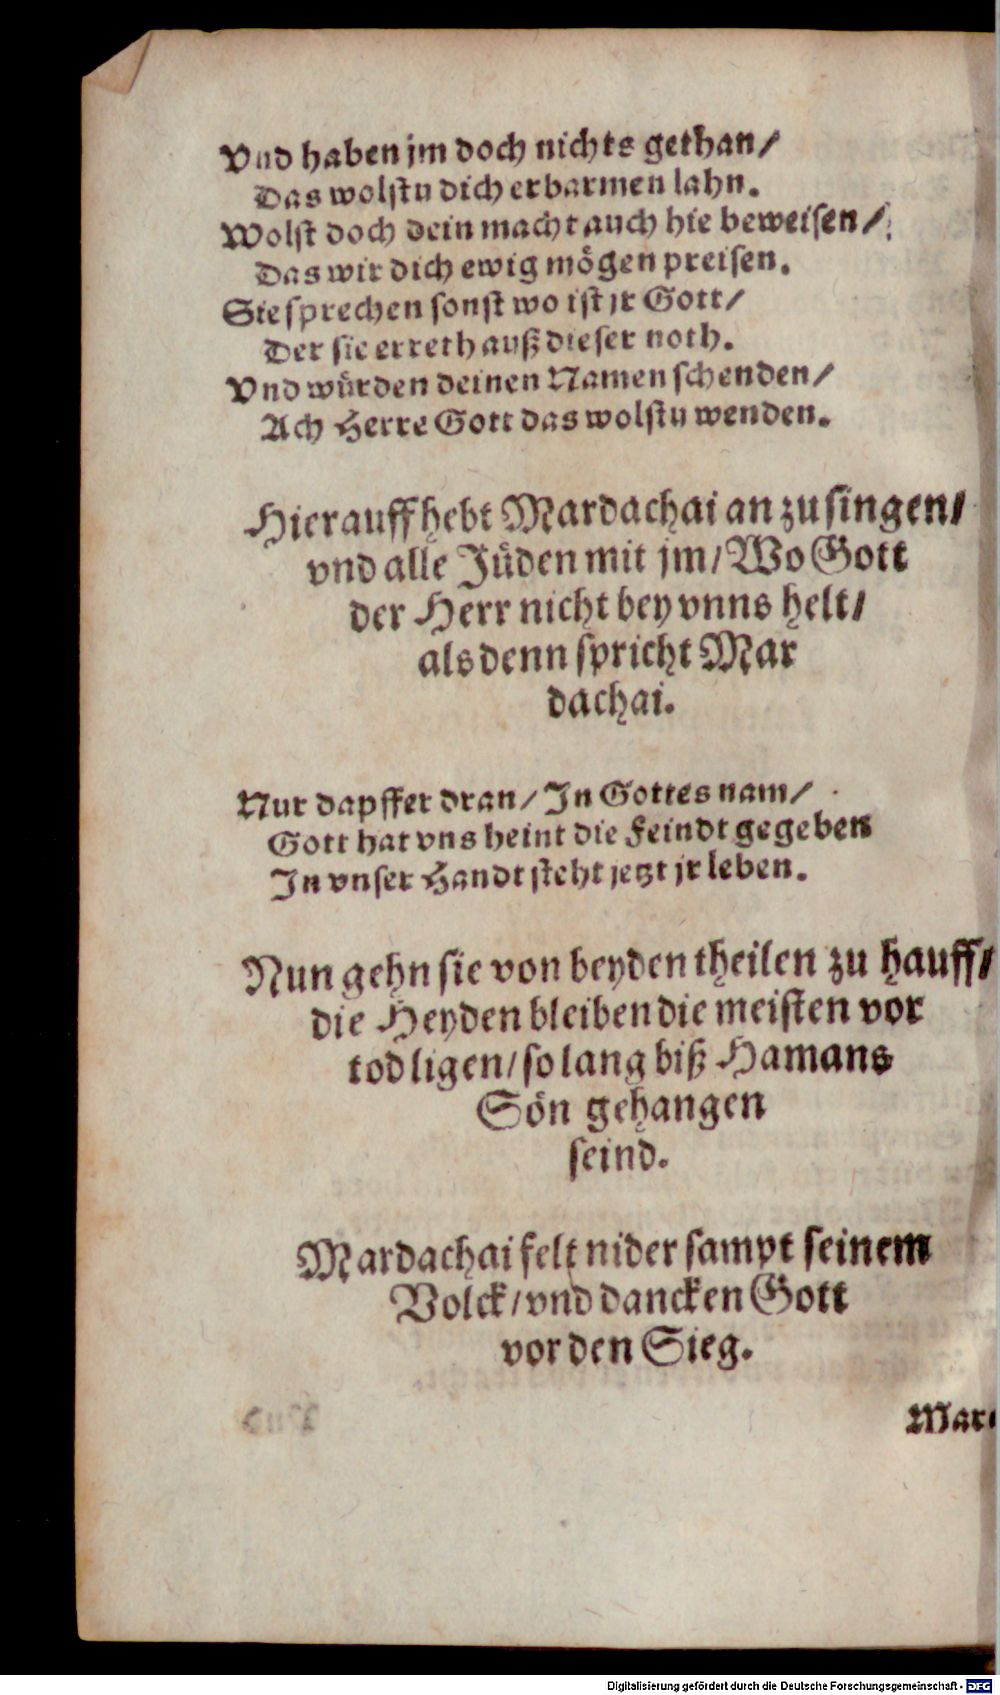 Vnd haben jm doch nichts gethan/
Das wolstu dich erbarmen lahn.
Wolst doch dein macht auch hie beweisen/
Das wir dich ewig mögen preisen.
Sie sprechen sonst wo ist jr Gott/
Der sie erreth auß dieser noth.
Vnd würden deinen Namen schenden/
Ach Herre Gott das wolstu wenden.
Hierauff hebt Mardachai an zu singen/
vnd alle Jüden mit jm/ Wo Gott
der Herr nicht bey vnns helt/
als denn spricht Mar
dachai.
Nur dapffer dran/ In Gottes nam/
Gott hat vns heint die Feindt gegeben
In vnser Handt steht jetzt jr leben.
Nun gehn sie von beyden theilen zu hauff/
die Heyden bleiben die meisten vor
tod ligen/ so lang biß Hamans
Sön gehangen
seind.
Mardachai felt nider sampt seinem
Volck/ vnd dancken Gott
vor den Sieg.
Mar
Digitalisierung gefördert durch die Deutsche Forschungsgemeinschaft - DFG